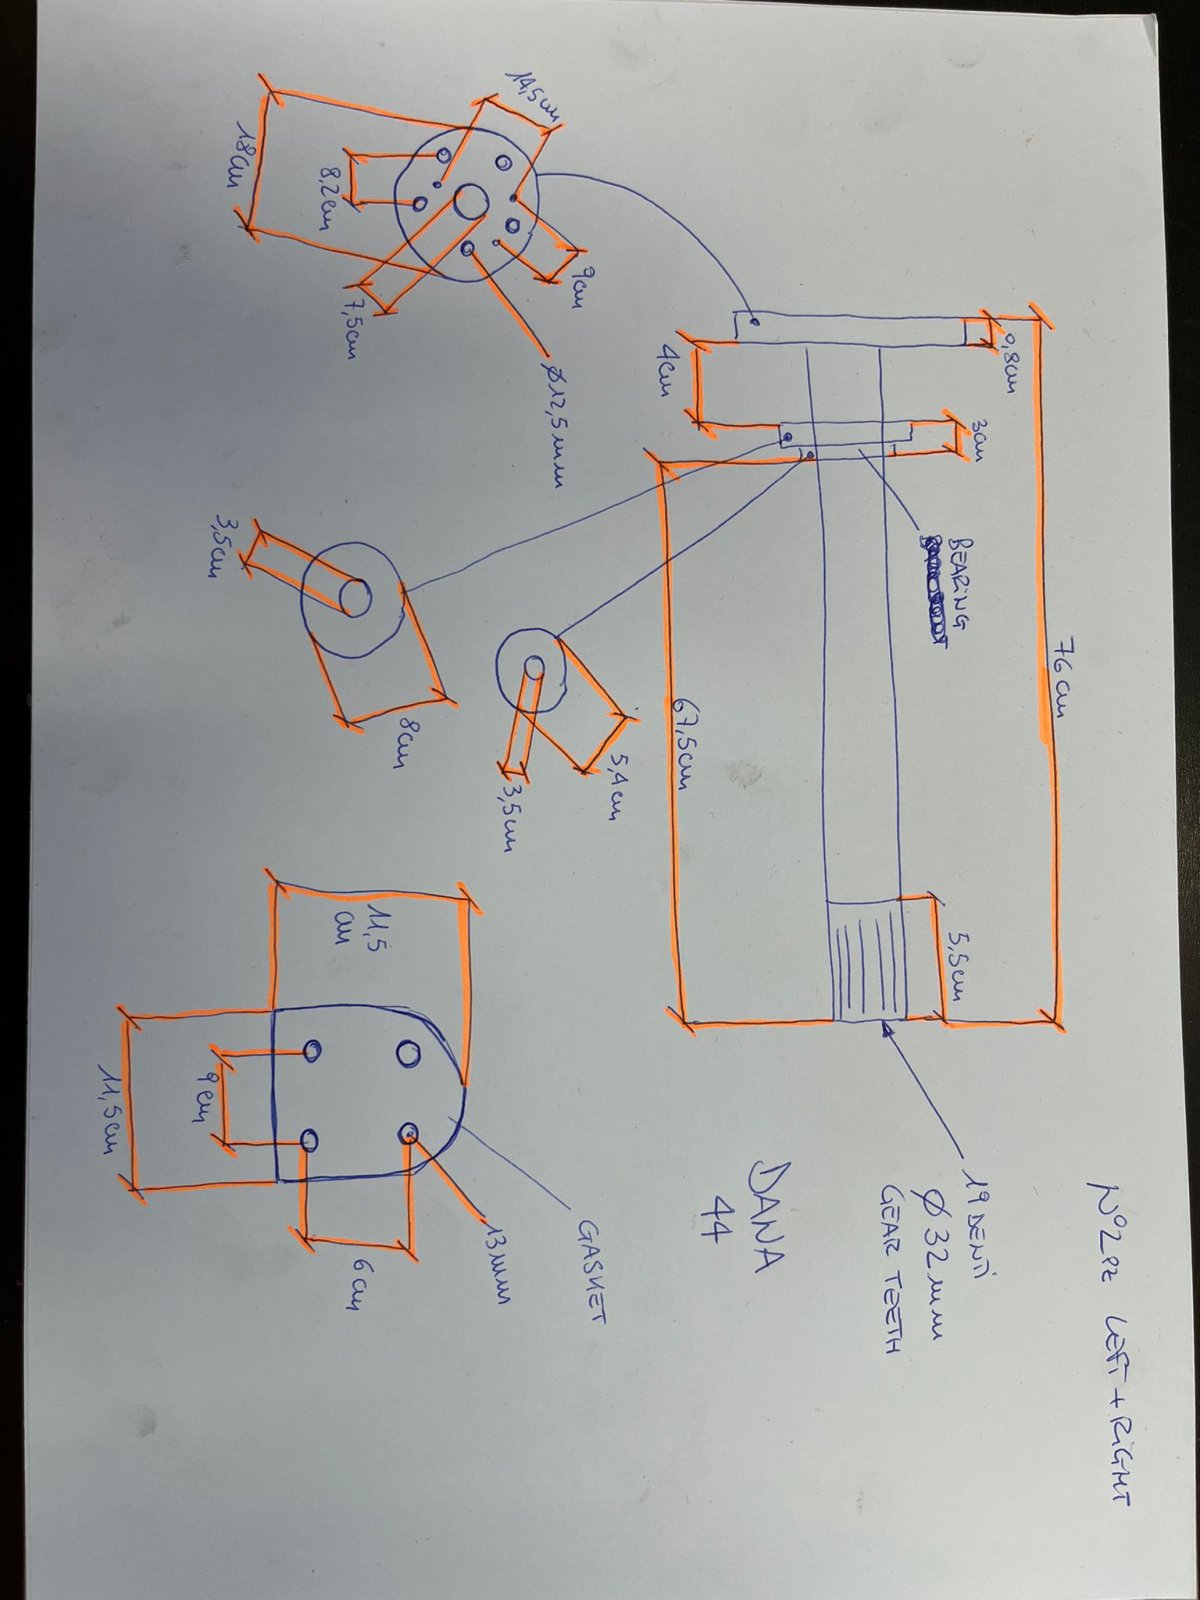 N°2 PZ LEFT + RIGHT
76 cm
0,8cm
3cm
BEARING
5,5cm
19 DENTI
Ø 32 mm
GEAR TEETH
DANA
44
4cm
67,5cm
14,5cm
9cm
Ø12,5mm
18cm
8,2cm
7,5cm
5,4cm
3,5cm
8cm
3,5cm
GASKET
13mm
11,5
cm
6cm
9cm
11,5cm